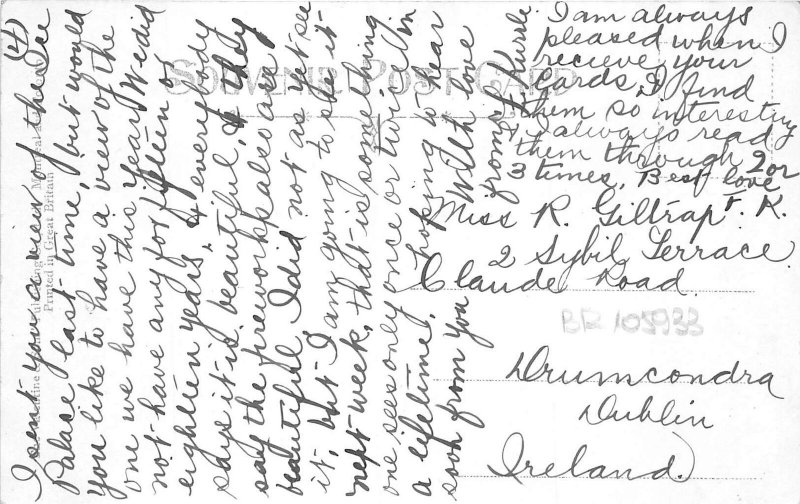 (4)
I sent you a view of the Ice
Palace last time, but would
you like to have a view of the
one we have this year. We did
not have any for fifteen or
eighteen years, & everybody
says it is beautiful, & they
say the fireworks also are
beautiful, I did not as yet see
it, but I am going to see it
next week, that is something
one sees only once or twice in
a lifetime, hoping to hear
soon from you With love
from
I am always
pleased when I
recieve your
cards, I find
them so interesting
I always read
them through 2 or
3 times, Best love
K.
SOUVENIR POST CARD
Printed in Great Britain
Miss R. Giltrap
2 Sybil Terrace
Claude Road
BR 105933
Drumcondra
Dublin
Ireland.